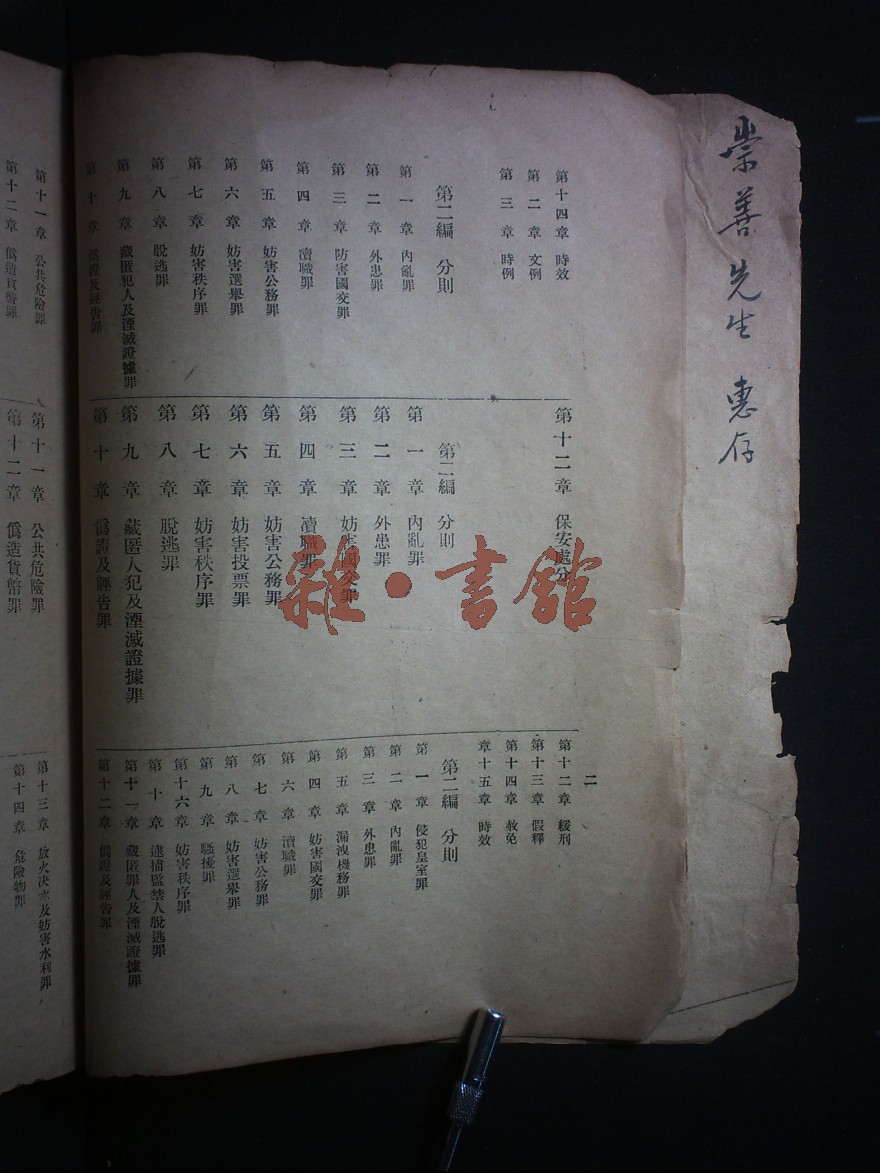 崇善先生 惠存
二
第十四章 時效
第二章 文例
第三章 時例
第二編 分則
第一章 內亂罪
第二章 外患罪
第三章 妨害國交罪
第四章 瀆職罪
第五章 妨害公務罪
第六章 妨害選舉罪
第七章 妨害秩序罪
第八章 脫逃罪
第九章 藏匿犯人及湮滅證據罪
第十章 偽證及誣告罪
第十一章 公共危險罪
第十二章 偽造貨幣罪
第十二章 保安處分
第二編 分則
第一章 內亂罪
第二章 外患罪
第三章 妨害國交罪
第四章 瀆職罪
第五章 妨害公務罪
第六章 妨害投票罪
第七章 妨害秩序罪
第八章 脫逃罪
第九章 藏匿人犯及湮滅證據罪
第十章 偽證及誣告罪
第十一章 公共危險罪
第十二章 偽造貨幣罪
第十二章 緩刑
第十三章 假釋
第十四章 赦免
章十五章 時效
第二編 分則
第一章 侵犯皇室罪
第二章 內亂罪
第三章 外患罪
第五章 漏洩機務罪
第四章 妨害國交罪
第六章 瀆職罪
第七章 妨害公務罪
第八章 妨害選舉罪
第九章 騷擾罪
第十六章 妨害秩序罪
第十章 逮捕監禁人脫逃罪
第十一章 藏匿罪人及湮滅證據罪
第十二章 偽證及誣告罪
第十三章 放火決水及妨害水利罪
第十四章 危險物罪
雜·書館